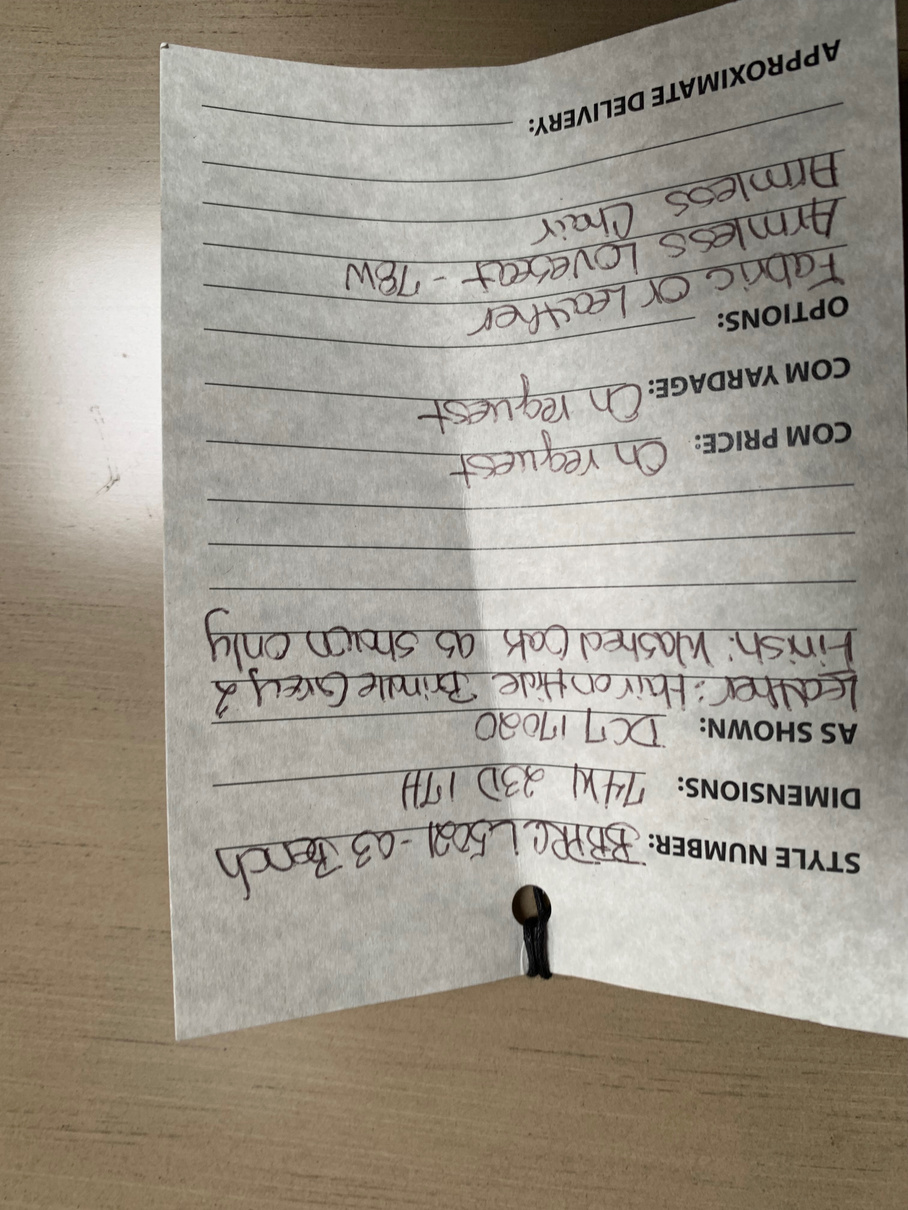 STYLE NUMBER: BBRC L5021-03 Bench
DIMENSIONS: 74W 23D 17H
AS SHOWN: DCT 17020
Leather: Hair on Hide Brindle Grey 2
Finish: Washed Oak as shown only
COM PRICE: On request
COM YARDAGE: On request
OPTIONS:
Fabric or Leather
Armless Loveseat - 78W
Armless Chair
APPROXIMATE DELIVERY: